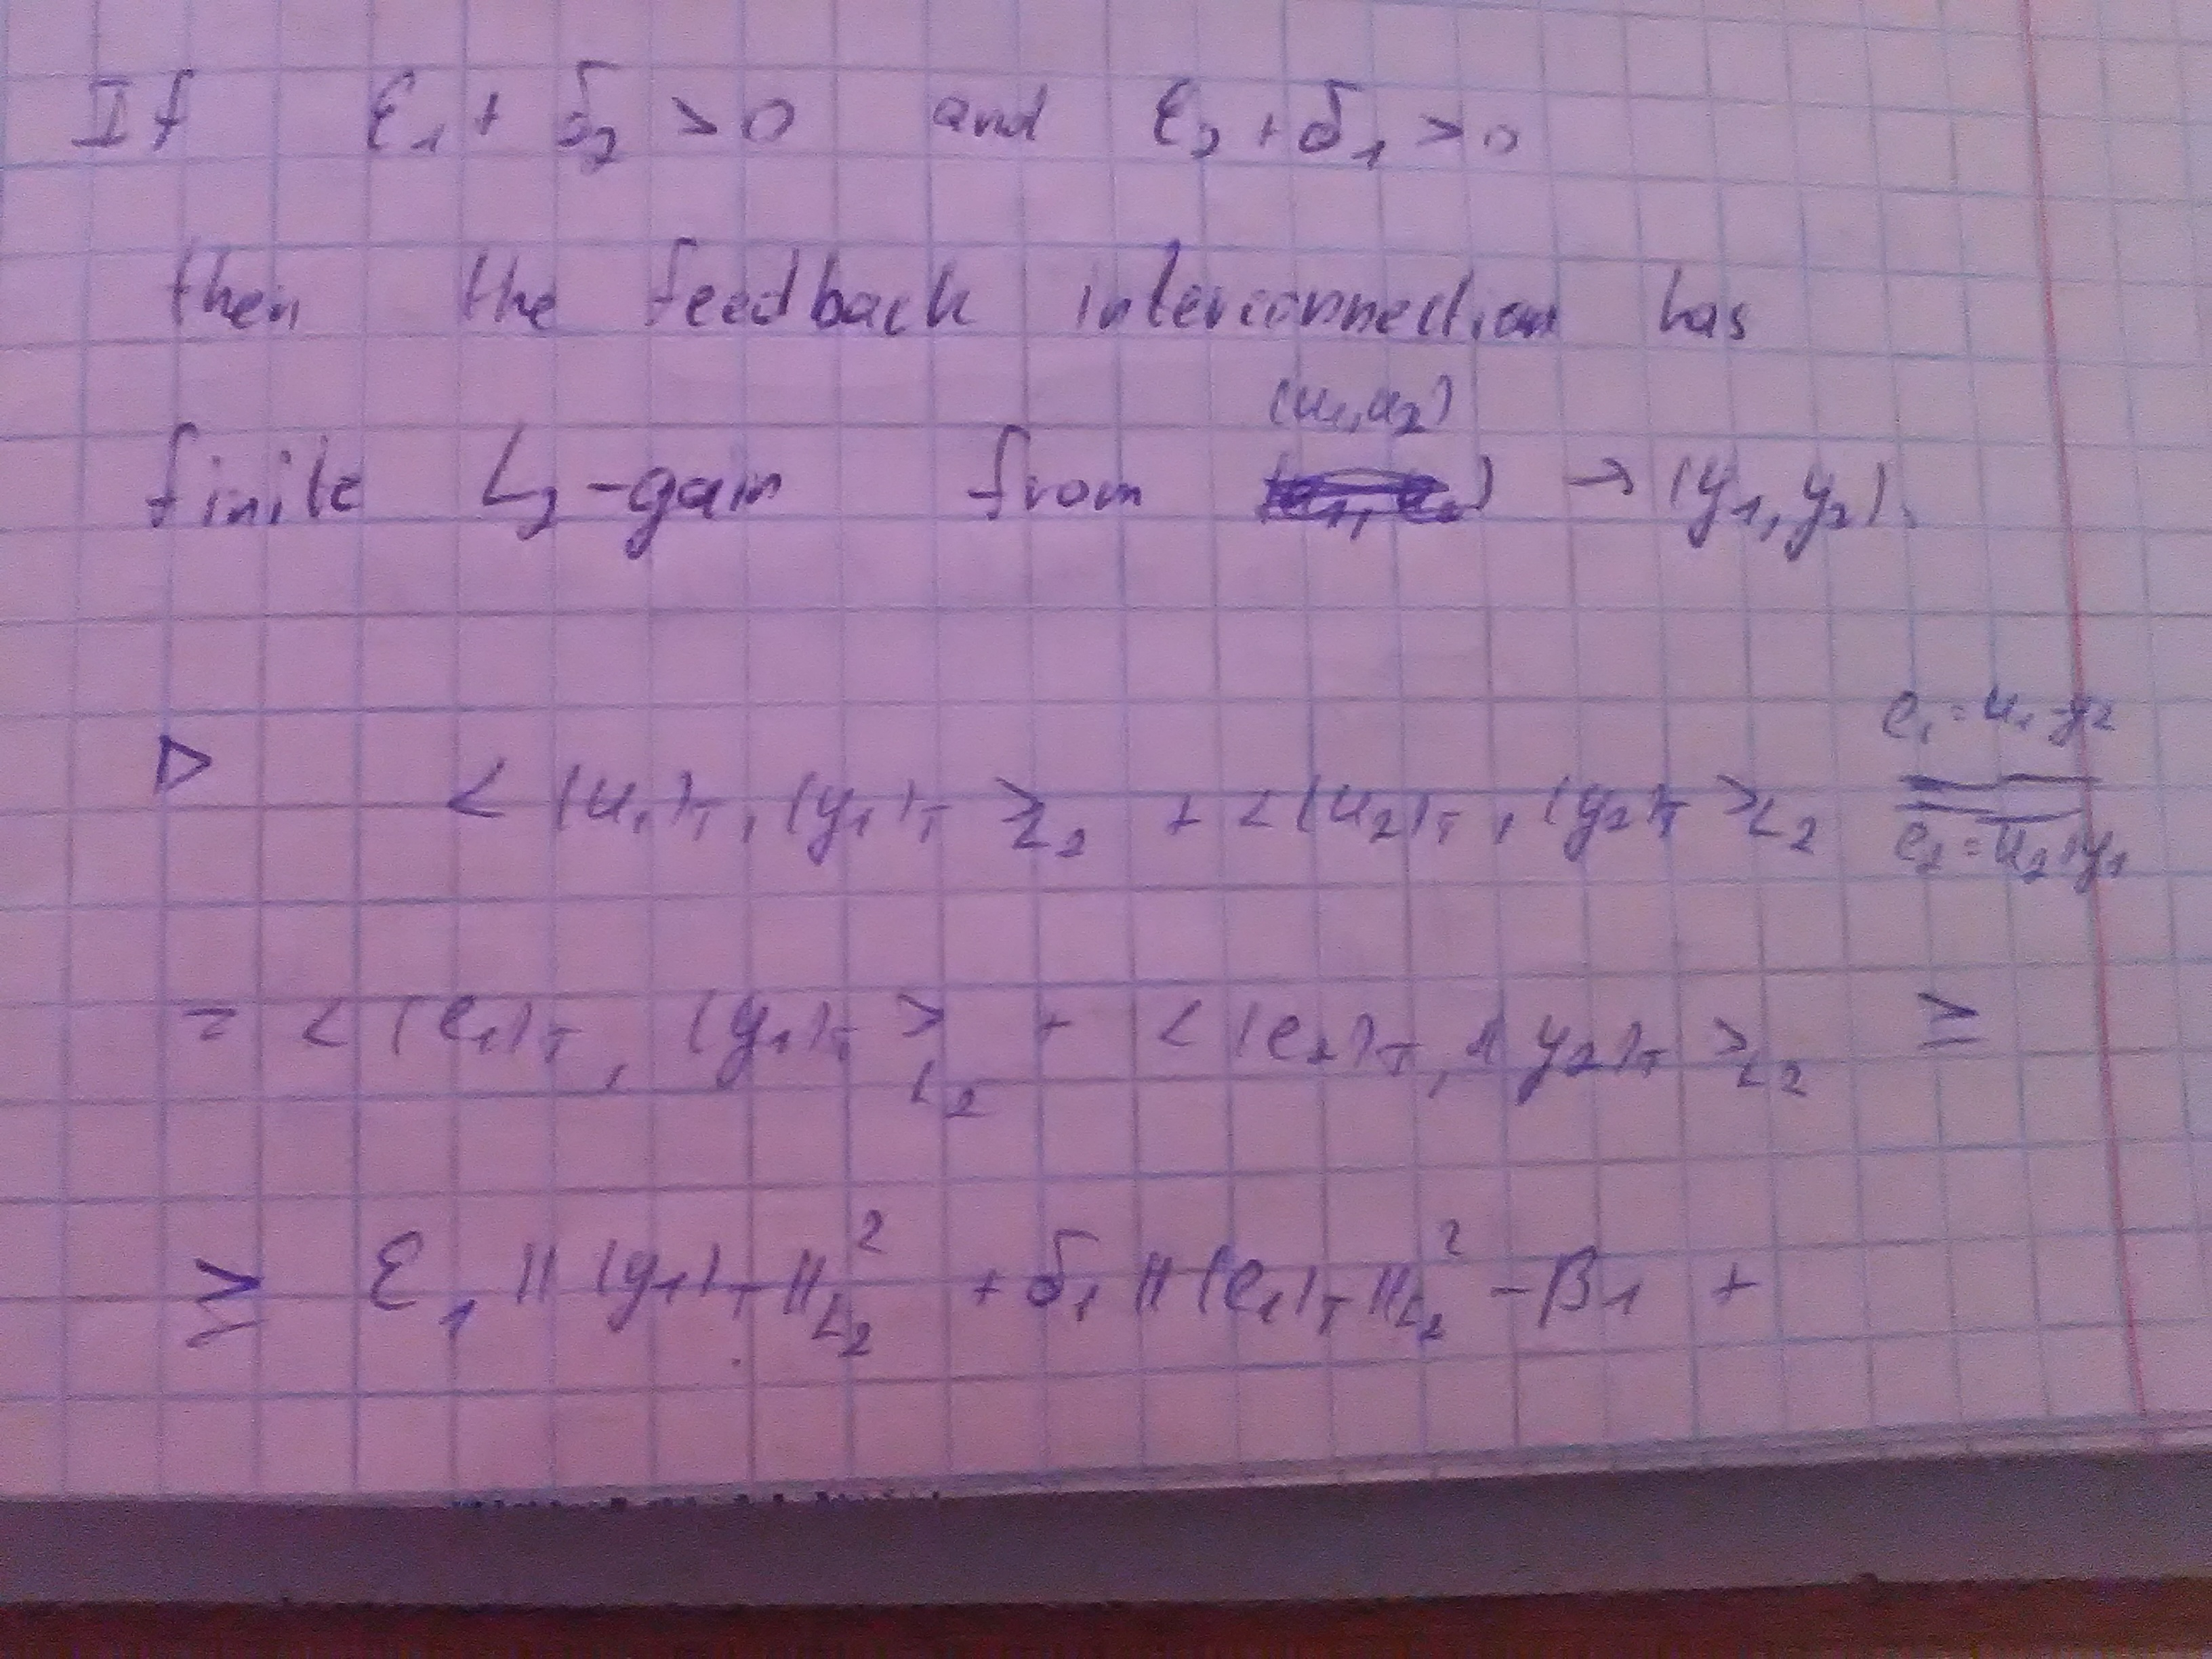 If ε₁ + δ₂ > 0 and ε₂ + δ₁ > 0
then the feedback interconnection has
(u₁, u₂)
finite L₂-gain from → (y₁, y₂).
e₁ = u₁ - y₂
▷ < (u₁)_T, (y₁)_T >_L₂ + < (u₂)_T, (y₂)_T >_L₂ =
e₂ = u₂ + y₁
= < (e₁)_T, (y₁)_T >_L₂ + < (e₂)_T, (y₂)_T >_L₂ ≥
≥ ε₁ || (y₁)_T ||²_L₂ + δ₁ || (e₁)_T ||²_L₂ - β₁ +